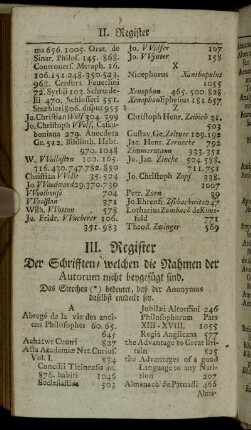 II. Register
ma 656. 1005. Orat. de
Sinar. Philos. 145. 868.
Controvers. Metaph. 16.
106. 251. 248. 350. 523.
962. Censura Feuerlini
72. Syrbii 103. Schrœde-
rii 470. Schlosseri 551.
Strahleri 806. disput 955
Jo. Christian Wolf 304. 399
Jo. Christoph Wolf, Casau-
boniana 279. Anecdota
Gr. 562. Biblioth. Hebr.
970. 1048
W. Wollaston 100. 165.
316. 430. 747. 782. 850
Christian Wolle 35. 524
J Woodward 29. 370. 730
Woodrouse 704
Woolston 371
Wilh. Wotton 578
Jo. Fridr. Wucherer 106.
331. 965
Jo. Wülfer 107
Jo. Wynner 158
X
Nicephorus Xanthopulus
1055
Xenophon 465. 500. 828
Xenophon Ephesius 181. 657
Z
Christoph Henr. Zeibich 31.
503
Gustav. Ge. Zeltner 109. 198
Jac. Henr. Zernecke 792
Zimmermann 333. 351
Jo. Jac. Zincke 504. 588.
711. 751
Jo. Christoph Zopf 338.
1007
Petr. Zorn 39
Jo. Ehrenfr. Zschackwitz 247
Lotharius Zumbach de Koes-
feld 771
Theod. Zwinger 569
III. Register
Der Schrifften/ welchen die Nahmen der
Autorum nicht beygefügt sind.
Das Sterngen (*) bedeutet, daß der Anonymus
daselbst entdeckt sey.
A
Abregé de la vie des anci-
ens Philosophes 60. 65.
645
Achatwt Chori 827
Acta Academiæ Nat. Curios.
Vol. I. 884
Concilii Ticinensis an.
876. habiti 1046
Ecclesiastica 503
Jubilæi Altorfini 246
Philosophorum Pars
XIII-XVIII. 1055
Regia Angliscana 577
the Advantage to Great Bri-
tain 825
the Advantages of a good
Language to any Nati-
on 207
Almanach du Parnasse 466
Alma-